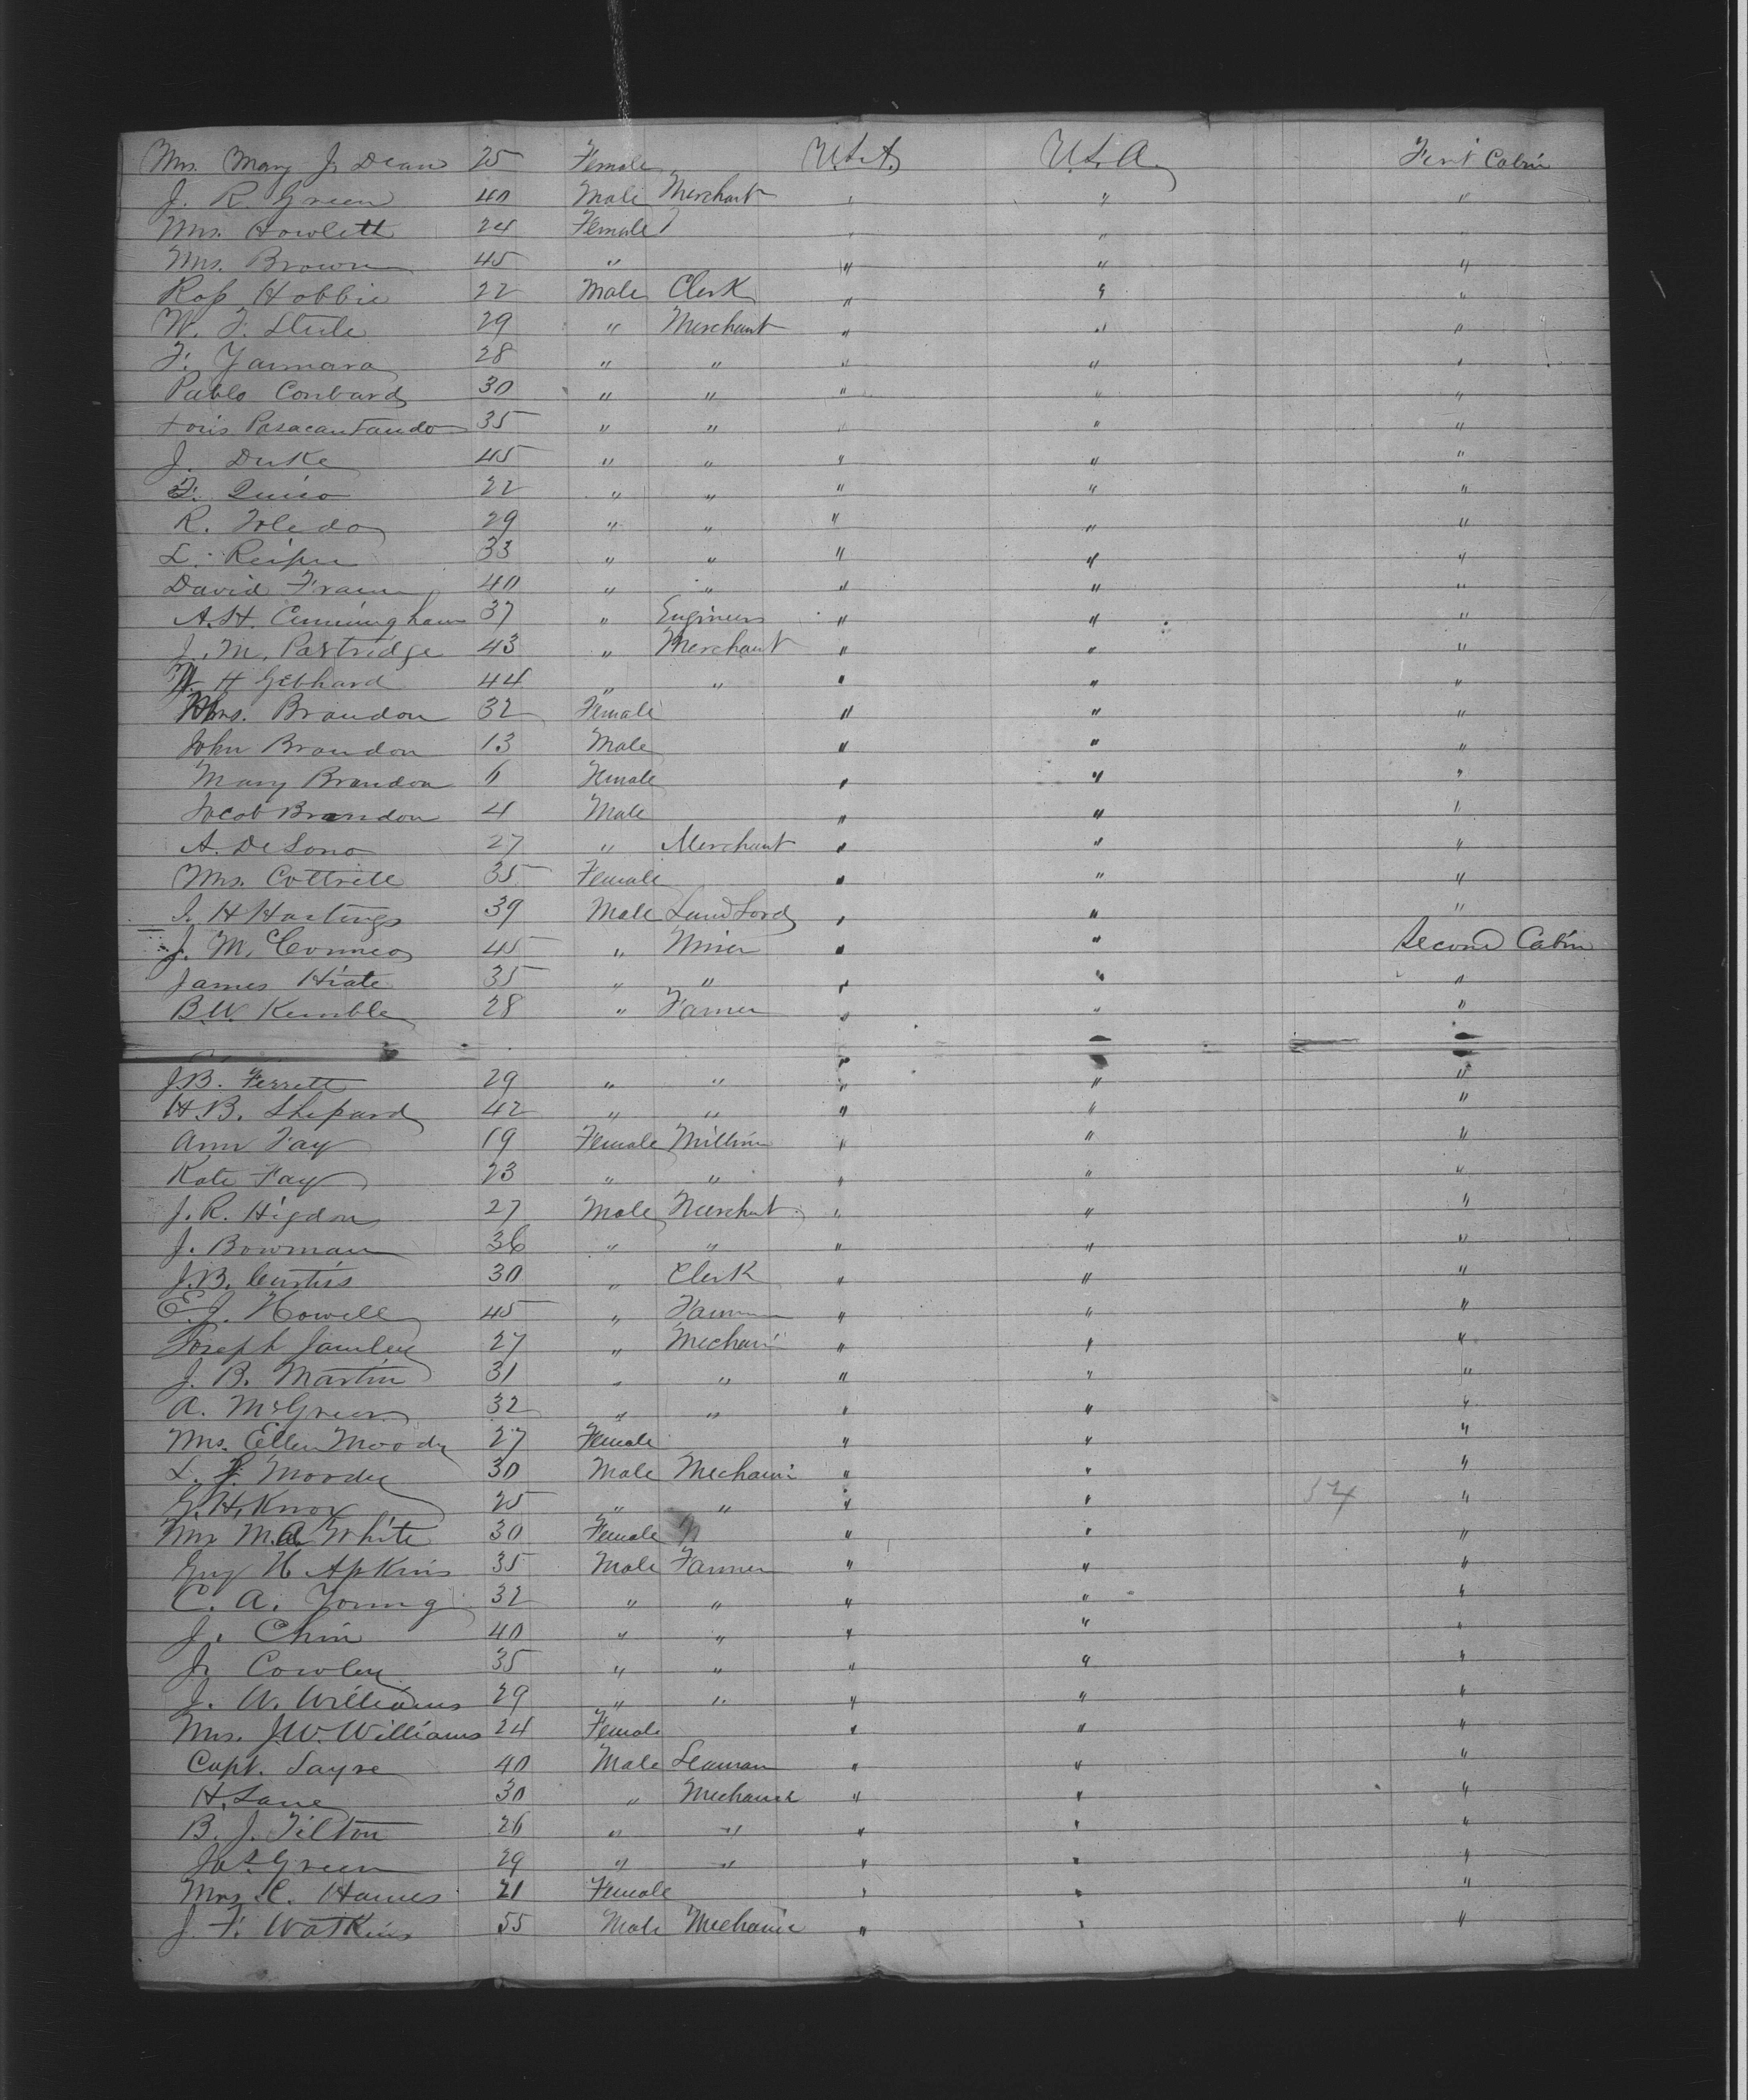 Mrs. Mary J. Dean 25 Female U.S.A. U.S.A. First Cabin
J. R. Green 40 Male Merchant " " "
Mrs. Howlett 24 Female " " "
Mrs. Brown 45 " " " "
Ross Hobbie 22 Male Clerk " " "
W. F. Steele 29 " Merchant " " "
F. Yammara 28 " " " " "
Pablo Conbard 30 " " " " "
Pasacantando 35 " " " " "
J. Duke 45 " " " " "
F. 22 " " " " "
R. Toledo 29 " " " " "
L. 33 " " " " "
David 40 " " " " "
A. H. Cunningham 37 " Engineer " " "
J. M. Partridge 43 " Merchant " " "
W. H Gebhard 44 " " " " "
Mrs. Brandon 32 Female " " "
John Brandon 13 Male " " "
Mary Brandon 6 Female " " "
Jacob Brandon 4 Male " " "
A. De Sono 27 " Merchant " " "
Mrs. Cottrell 35 Female " " "
J. H Hastings 39 Male Land Lord " " "
J. M. 45 " Miner " " Second Cabin
James Hiate 35 " " " " "
B.W. Kemble 28 " Farmer " " "
J.B. Ferrett 29 " " " " "
H.B. Shepard 42 " " " " "
Ann Fay 19 Female Millin " " "
Kate Fay 23 " " " " "
J. R. Higdon 27 Male Merchant " " "
J. Bowman 36 " " " " "
J.B. Curtis 30 " Clerk " " "
E. J. Howell 45 " Farmer " " "
Joseph 27 " Mechani " " "
J. B. Martin 31 " " " " "
A. McGreen 32 " " " " "
Mrs. Ellen Moody 27 Female " " "
L. Moody 30 Male Mechani " " "
G. H. Knox 25 " " " " 54 "
Mrs M.A. White 30 Female " " "
Guy H Apkins 35 Male Farmer " " "
C. A. Young 32 " " " " "
J. Chin 40 " " " " "
J. Cowley 35 " " " " "
J. W. Williams 29 " " " " "
Mrs. J.W. Williams 24 Female " " "
Capt. Sayre 40 Male Seaman " " "
H. Lane 30 " Mechanic " " "
B. J. Tilton 26 " " " " "
Jas. Green 29 " " " " "
Mrs. C. Hames 21 Female " " "
J. F. Watkins 55 Male Mechanic " " "